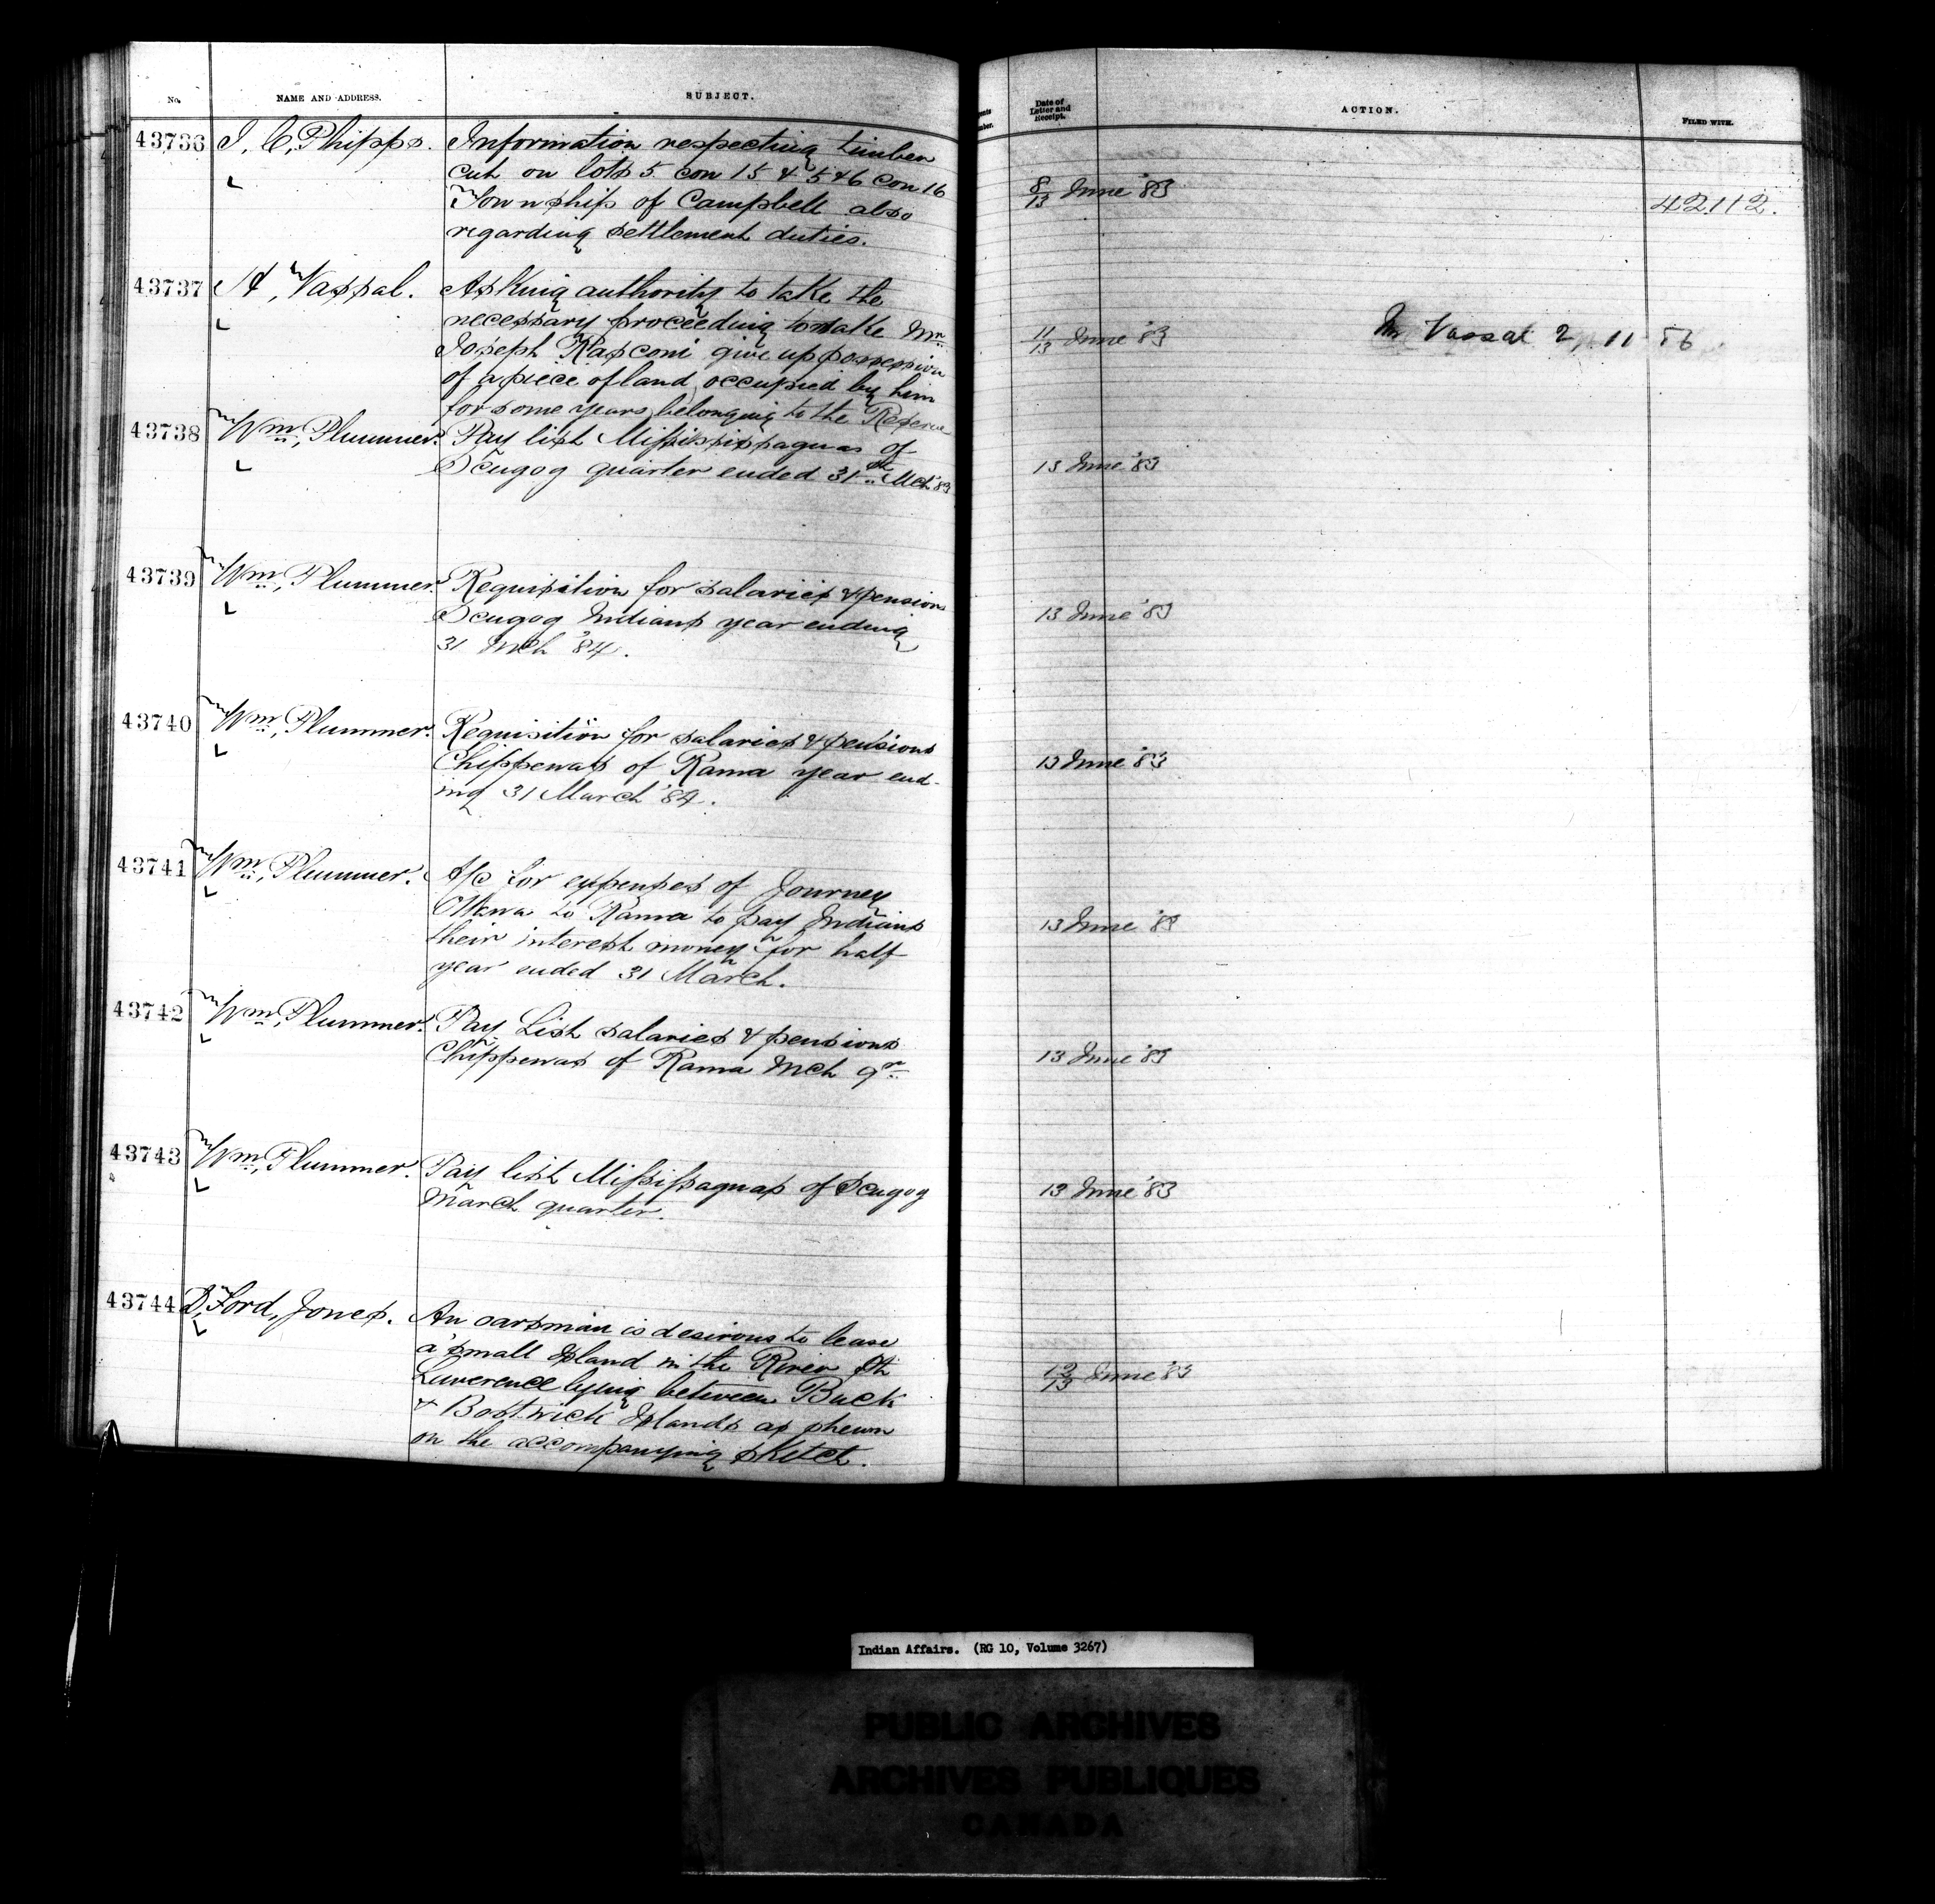 No. NAME AND ADDRESS. SUBJECT.
Date of Letter and Receipt. ACTION. FILED WITH.
43736 J. C. Phipps. Information respecting timber
cut on lots 5 con 15 & 5 & 6 con 16
Township of Campbell also
regarding settlement duties.
8/13 June '83 42112.
43737 H, Vassal. Asking authority to take the
necessary proceeding to make Mr
Joseph Rasconi give up possession
of a piece of land occupied by him
for some years belonging to the Reserve
11/13 June '83 Mr Vassal 2, 11 56
43738 Wm, Plummer. Pay list Mississippaguas of
Scugog quarter ended 31st Mch '83
13 June '83
43739 Wm, Plummer. Requisition for salaries & pensions
Scugog Indians year ending
31 Mch '84.
13 June '83
43740 Wm, Plummer. Requisition for salaries & pensions
Chippewas of Rama year end-
ing 31 March '84.
13 June '83
43741 Wm, Plummer. A/c for expenses of Journey
Ottawa to Rama to pay Indians
their interest money for half
year ended 31 March.
13 June '83
43742 Wm, Plummer. Pay List salaries & pensions
Chippewas of Rama Mch qr
13 June '83
43743 Wm, Plummer. Pay list Mississaguas of Scugog
March quarter.
13 June '83
43744 D, Ford, Jones. An oarsman is desirous to lease
a small Island in the River St
Lawerence lying between Buck
& Bostwick Islands as shewn
on the accompanying sketch.
12/13 June '83
Indian Affairs. (RG 10, Volume 3267)
PUBLIC ARCHIVES
ARCHIVES PUBLIQUES
CANADA